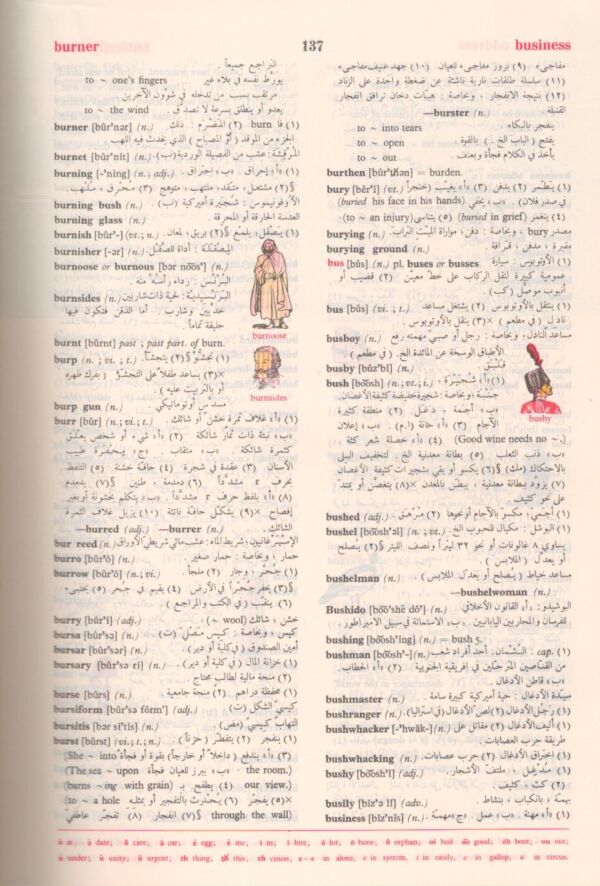 burner
137
business
البراجع جميعاً .
to ~ one's fingers
يورّط نفسه في بلاء غير
مرتقب بسبب من تدخله في شؤون الآخرين
to ~ the wind
يعدو أو ينطلق بسرعة لا تصدّق .
burner [bûr'nər] (n.)
(١) فا burn (٢) المُضرِّم : ذلك
الجزء من الموقد ( أو المصباح ) الذي يحدث فيه اللهب .
burnet [bûr'nit] (n.)
عشب من الفصيلة الوردية (ب) .
burning [-'ning] (n.; adj.)
burning bush (n.)
burning glass (n.)
العدسة الحارقة أو المحرقة .
burnish [bûr'-] (vi.; n.)
burnisher [-ər] (n.)
المِصقلة : أداة للصقل .
burnoose or burnous [bər noos'] (n.)
البُرْنُس : رداء رأسه منه .
burnoose
burnsides (n.)
خدين وشارب . أما الذقن فتكون فيها
حليقة تماماً .
burnsides
burnt [bûrnt] past ; past part. of burn.
burp (n. ; vi. ; t.)
(١) تجشّؤ §(٢) يتجشّأ .
×(٣) يساعد طفلاً على التجشّؤ ( بفرك ظهره
أو بالتربيت عليه ) .
burp gun (n.)
مسدس أوتوماتيكي .
burr [bûr] (n.; vi.; t.)
(١) «أ» غلاف ثمرة خشن أو شائك .
«ب» نبتة ذات ثمار شائكة (٢) «أ» شيء أو شخص يعلق
—burred (adj.) —burrer (n.)
bur reed (n.)
burro [bûr'ō] (n.)
حمار ، وبخاصة : حمار صغير .
burrow [bûr'ō] (n.; vi.)
(١) جُحر ، وجار (٢) ملجأ .
§(٣) يحفر جحراً في الأرض (٤) يقيم في جحر (٥) يختبىء
(٦) ينقب ( في الكتب والمراجع ) .
burry [bûr'i] (adj.)
خشن ؛ شائك (~ wool) .
bursa [bûr'sə] (n.)
كيس ، وبخاصة : كيس مفصلي (ت) .
bursar [bûr'sər] (n.)
أمين الصندوق ( في كلية أو دير ) .
bursary [bûr'sə ri] (n.)
(١) خزانة المال ( في كلية أو دير ) .
(٢) منحة مالية لطالب محتاج .
burse [bûrs] (n.)
(١) محفظة دراهم (٢) منحة جامعية .
bursiform [bûr'sə fôrm'] (adj.)
كيسيّ الشكل (ت) .
bursitis [bər sī'tis] (n.)
التهاب كيسي (مض) .
burst [bûrst] (vi.; t.; n.)
(١) ينفجر (٢) يتفطّر ( حزناً ) .
(٣) «أ» يندفع ( داخلاً أو خارجاً ) بقوة أو فجأة (She ~ into
the room.) «ب» يبرز للعيان فجأة (The sea ~ upon
our view.) (٤) يطفح بـ (burns ~ing with grain)
×(٥) يفجّر (٦) يحدث بالتفجير أو مثله (to ~ a hole
through the wall) §(٧) انفجار (٨) تفجّر عاطفيّ
مفاجىء (٩) بروز مفاجىء للعيان (١٠) جهد عنيف مفاجىء
(١١) سلسلة طلقات نارية ناشئة عن ضغطة واحدة على الزناد
(١٢) نتيجة الانفجار ، وبخاصة : هبّات دخان ترافق انفجار
القنبلة .
—burster (n.)
to ~ into tears
ينفجر بالبكاء .
to ~ open
يفتح ( الباب الخ . ) بالقوة .
to ~ out
يأخذ في الكلام فجأة وبعنف .
burthen [bûr'thən] = burden.
bury [ber'i] (vt.)
(١) يَطْمِر (٢) يدفن (٣) «أ» يغيب ( خنجراً
في صدر فلان ) . «ب» يخفي (buried his face in his hands)
(٤) يغمر (buried in grief) (٥) يتناسى (to ~ an injury) .
burying (n.)
مصدر bury ، وبخاصة : دفن ، مواراة الميت التراب .
burying ground (n.)
مقبرة ، مدفن ، قرافة .
bus [bŭs] (n.) pl. buses or busses.
(١) الأوتوبوس : سيارة
عمومية كبيرة لنقل الركاب على خط معيّن (٢) قضيب أو
أنبوب موصل (كب) .
bus [bŭs] (vi. ; t.)
(١) ينتقل بالأوتوبوس (٢) يشتغل مساعد
نادل ( في مطعم ) ×(٣) ينقل بالأوتوبوس .
busboy (n.)
مساعد النادل ، وبخاصة : رجل أو صبي مهمته رفع
الأطباق الوسخة عن المائدة الخ . ( في مطعم ) .
busby [bŭz'bi] (n.)
قلبق .
busby
bush [boosh] (n.; vi.; t.)
(١) «أ» شجيرة .
جَنْبَة ، وبخاصة : شجيرة خفيضة كثيفة الأغصان .
«ب» أجمة ، دغل . (٢) منطقة كثيرة
الآجام (٣) «أ» حانة (ا.م) . «ب» إعلان
(Good wine needs no ~.) (٤) «أ» خصلة شعر كثة .
«ب» ذنب الثعلب (٥) بطانة معدنية الخ . لتخفيف البلى
بالاحتكاك (مك) §(٦) يكسو أو يقي بشجيرات كثيفة الأغصان
(٧) يزوّد ببطانة معدنية ، يبطن بالمعدن ×(٨) يتغصّن أو يمتدّ
على نحو كثيف .
bushed (adj.)
(١) أجميّ ؛ مكسو بالآجام أو نحوها (٢) مُرْهَق .
bushel [boosh'əl] (n. ; vt.)
(١) البوشل : مكيال للحبوب الخ .
يساوي ٨ غالونات أو نحو ٣٢ ليتراً ونصف الليتر §(٢) يُصلح
أو يعدل ( الملابس ) .
bushelman (n.)
مساعد خياط ( يُصلح أو يعدل الملابس ) .
—bushelwoman (n.)
Bushido [boo'shē dô'] (n.)
البوشيدو : «أ» القانون الأخلاقي
للفرسان والمحاربين اليابانيين . «ب» الاستماتة في سبيل الامبراطور .
bushing [boosh'ing] (n.) = bush 5.
bushman [boosh'-] (n.)
(١) cap. : البُشْمان : أحد أفراد شعب
من القنّاصين المترحلين في إفريقية الجنوبية (٢) «أ» الحطاب .
«ب» قاطن الأدغال .
bushmaster (n.)
سيّدة الأدغال : حية أميركية كبيرة سامة .
bushranger (n.)
(١) رجل الأدغال (٢) لص الأدغال ( في استراليا ) .
bushwhacker [-'hwăk-] (n.)
(١) أليف الأدغال (٢) مقاتل على
طريقة حرب العصابات .
bushwhacking (n.)
(١) اختراق الأدغال (٢) حرب عصابات .
bushy [boosh'i] (adj.)
(١) مُدْغِل ، ملتفّ الأشجار .
(٢) كث ، كثيف .
busily [biz'ə li] (adv.)
بهمّة ، بانكباب ، بنشاط .
business [biz'nis] (n.)
(١) «أ» مهنة . «ب» عمل . «ج» مهمّة .
ă at; ā date; â care; ä car; ĕ egg; ē me; ĭ in; ī bite; ŏ lot; ō bone; ô orphan; oi boil oo good; oo boot; ou out;
ŭ under; ū unity; û urgent; th thing; th this; zh vision, a-ə in alone, e in system, i in easily, o in gallop, u in circus.